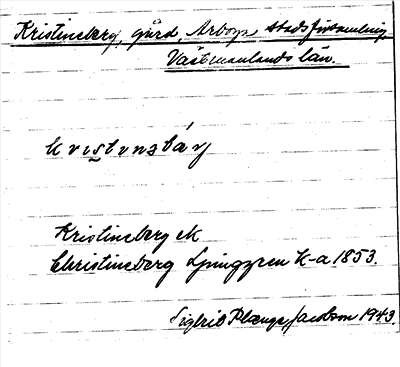 Kristineberg, gård, Arboga stadsförsamling,
Västmanlands län.
kristinəbärj
Kristineberg ek
Christineberg Ljunggren K-a 1853.
Sigfrid Plænge Jacobson 1943.